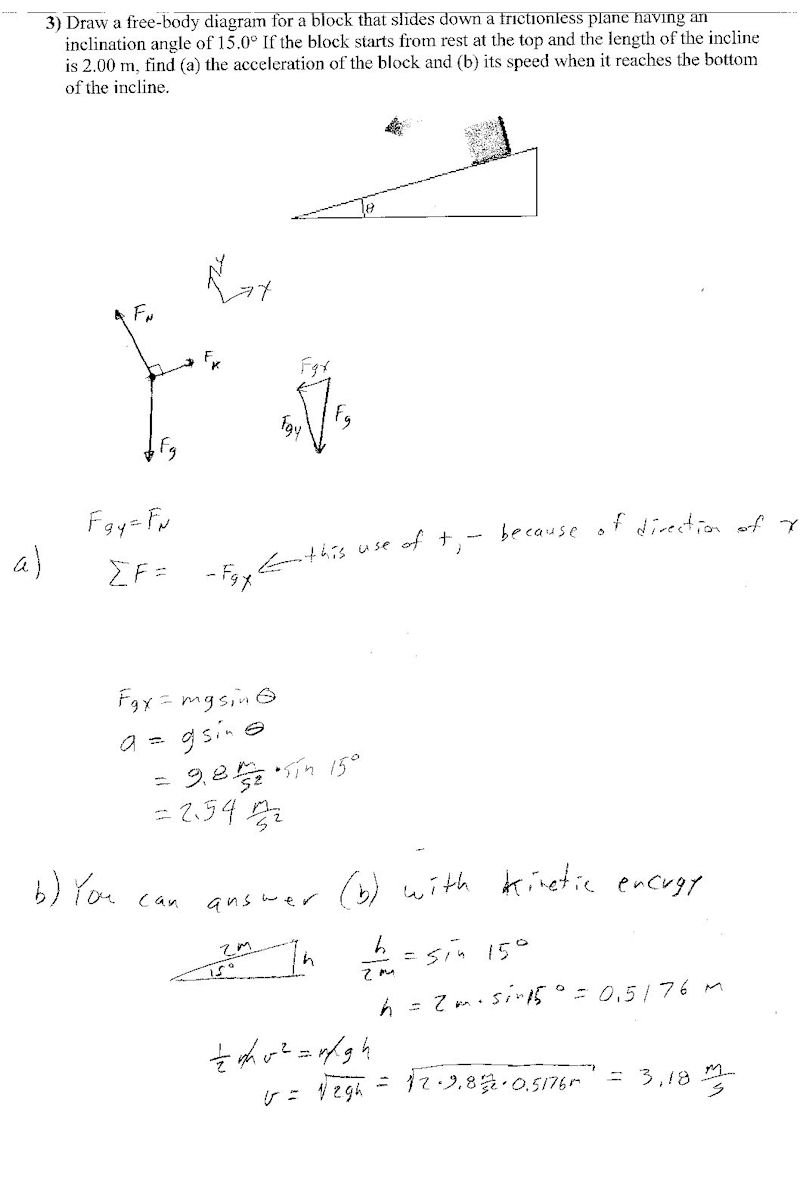 3) Draw a free-body diagram for a block that slides down a frictionless plane having an
inclination angle of 15.0° If the block starts from rest at the top and the length of the incline
is 2.00 m, find (a) the acceleration of the block and (b) its speed when it reaches the bottom
of the incline.
θ
y
x
F_N
F_K
F_g
F_gx
F_gy
F_g
F_gy = F_N
a) ΣF = -F_gx ← this use of +,- because of direction of x
F_gx = mg sin θ
a = g sin θ
= 9.8 m/s² · sin 15°
= 2.54 m/s²
b) You can answer (b) with kinetic energy
2m
15°
h
h/2m = sin 15°
h = 2m · sin15° = 0.5176 m
½ mv² = mgh
v = √2gh = √2·9.8 m/s²·0.5176m = 3.18 m/s